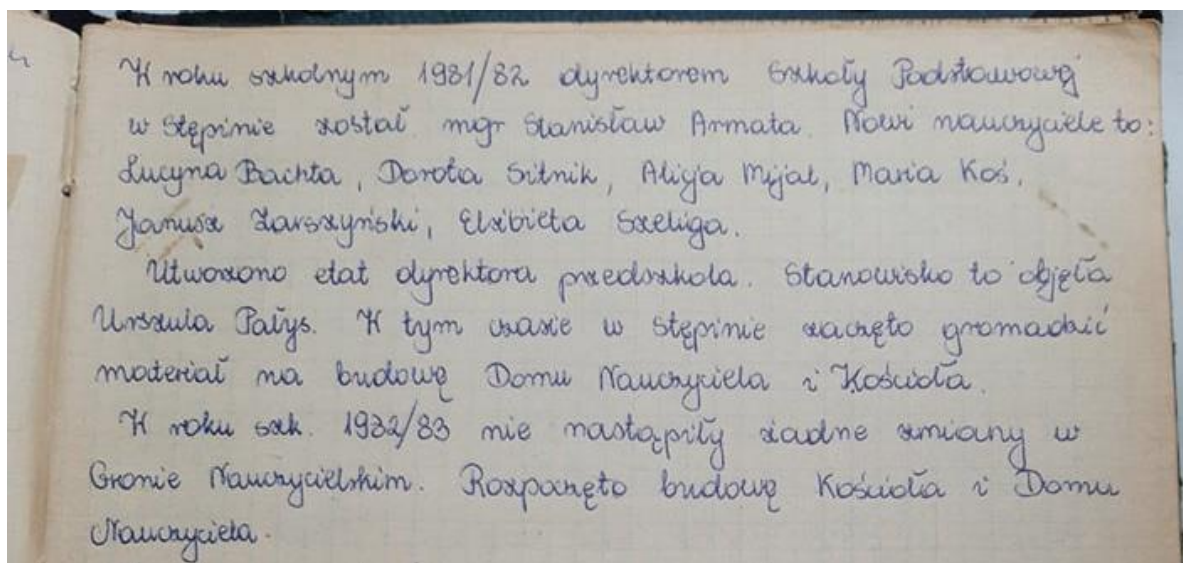 W roku szkolnym 1981/82 dyrektorem Szkoły Podstawowej
w Stępinie został mgr Stanisław Armata. Nowi nauczyciele to:
Lucyna Bachta, Dorota Sitnik, Alicja Mijal, Maria Koś,
Janusz Zarszyński, Elżbieta Szeliga.
Utworzono etat dyrektora przedszkola. Stanowisko to objęła
Urszula Pałys. W tym czasie w Stępinie zaczęto gromadzić
materiał na budowę Domu Nauczyciela i Kościoła.
W roku szk. 1982/83 nie nastąpiły żadne zmiany w
Gronie Nauczycielskim. Rozpoczęto budowę Kościoła i Domu
Nauczyciela.